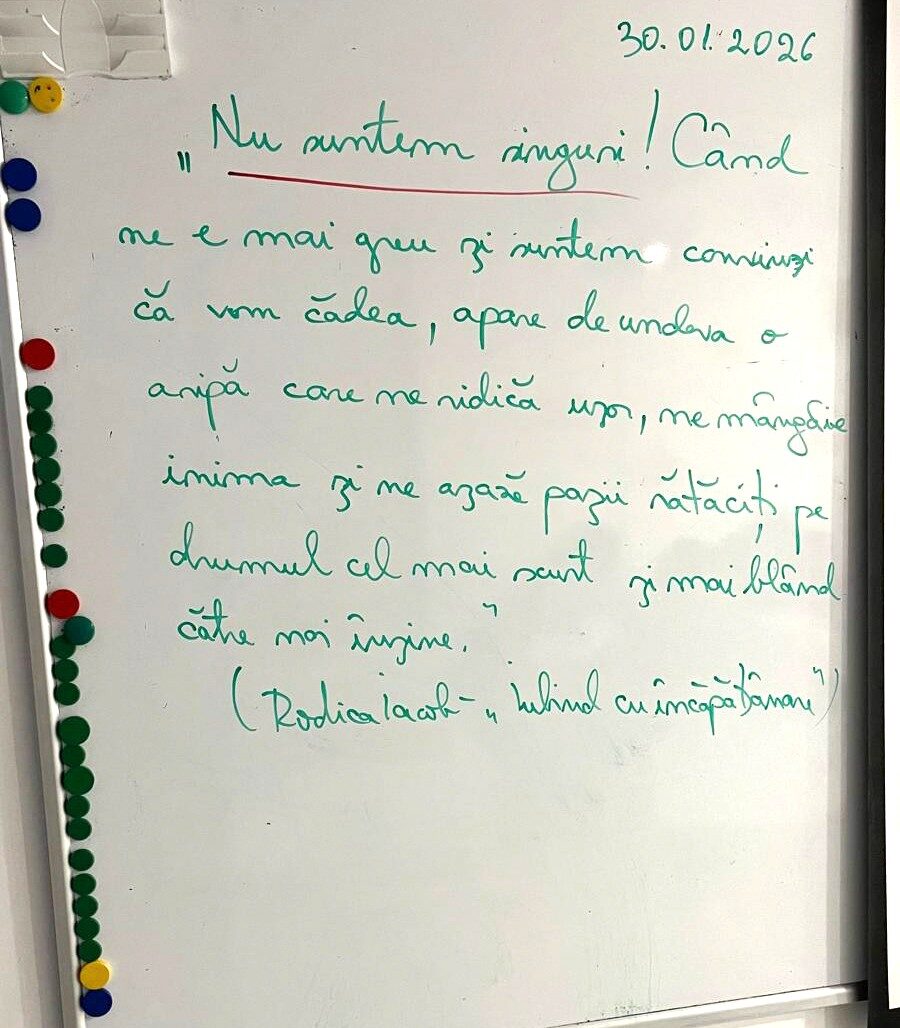 30.01.2026
„Nu suntem singuri! Când
ne e mai greu și suntem convinși
că vom cădea, apare de undeva o
aripă care ne ridică ușor, ne mângâie
inima și ne așază pașii rătăciți pe
drumul cel mai scurt și mai blând
către noi înșine.”
(Rodica Iacob - „Iubind cu încăpățânare”)